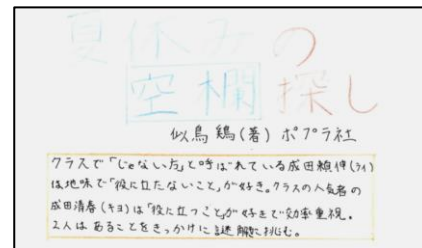 夏休みの
空欄探し
似鳥鶏(著) ポプラ社
クラスで「じゃない方」と呼ばれている成田頼伸(ライ)
は地味で「役に立たないこと」が好き。クラスの人気者の
成田清春(キヨ)は「役に立つこと」が好きで効率重視。
2人はあることをきっかけに謎解に挑む。